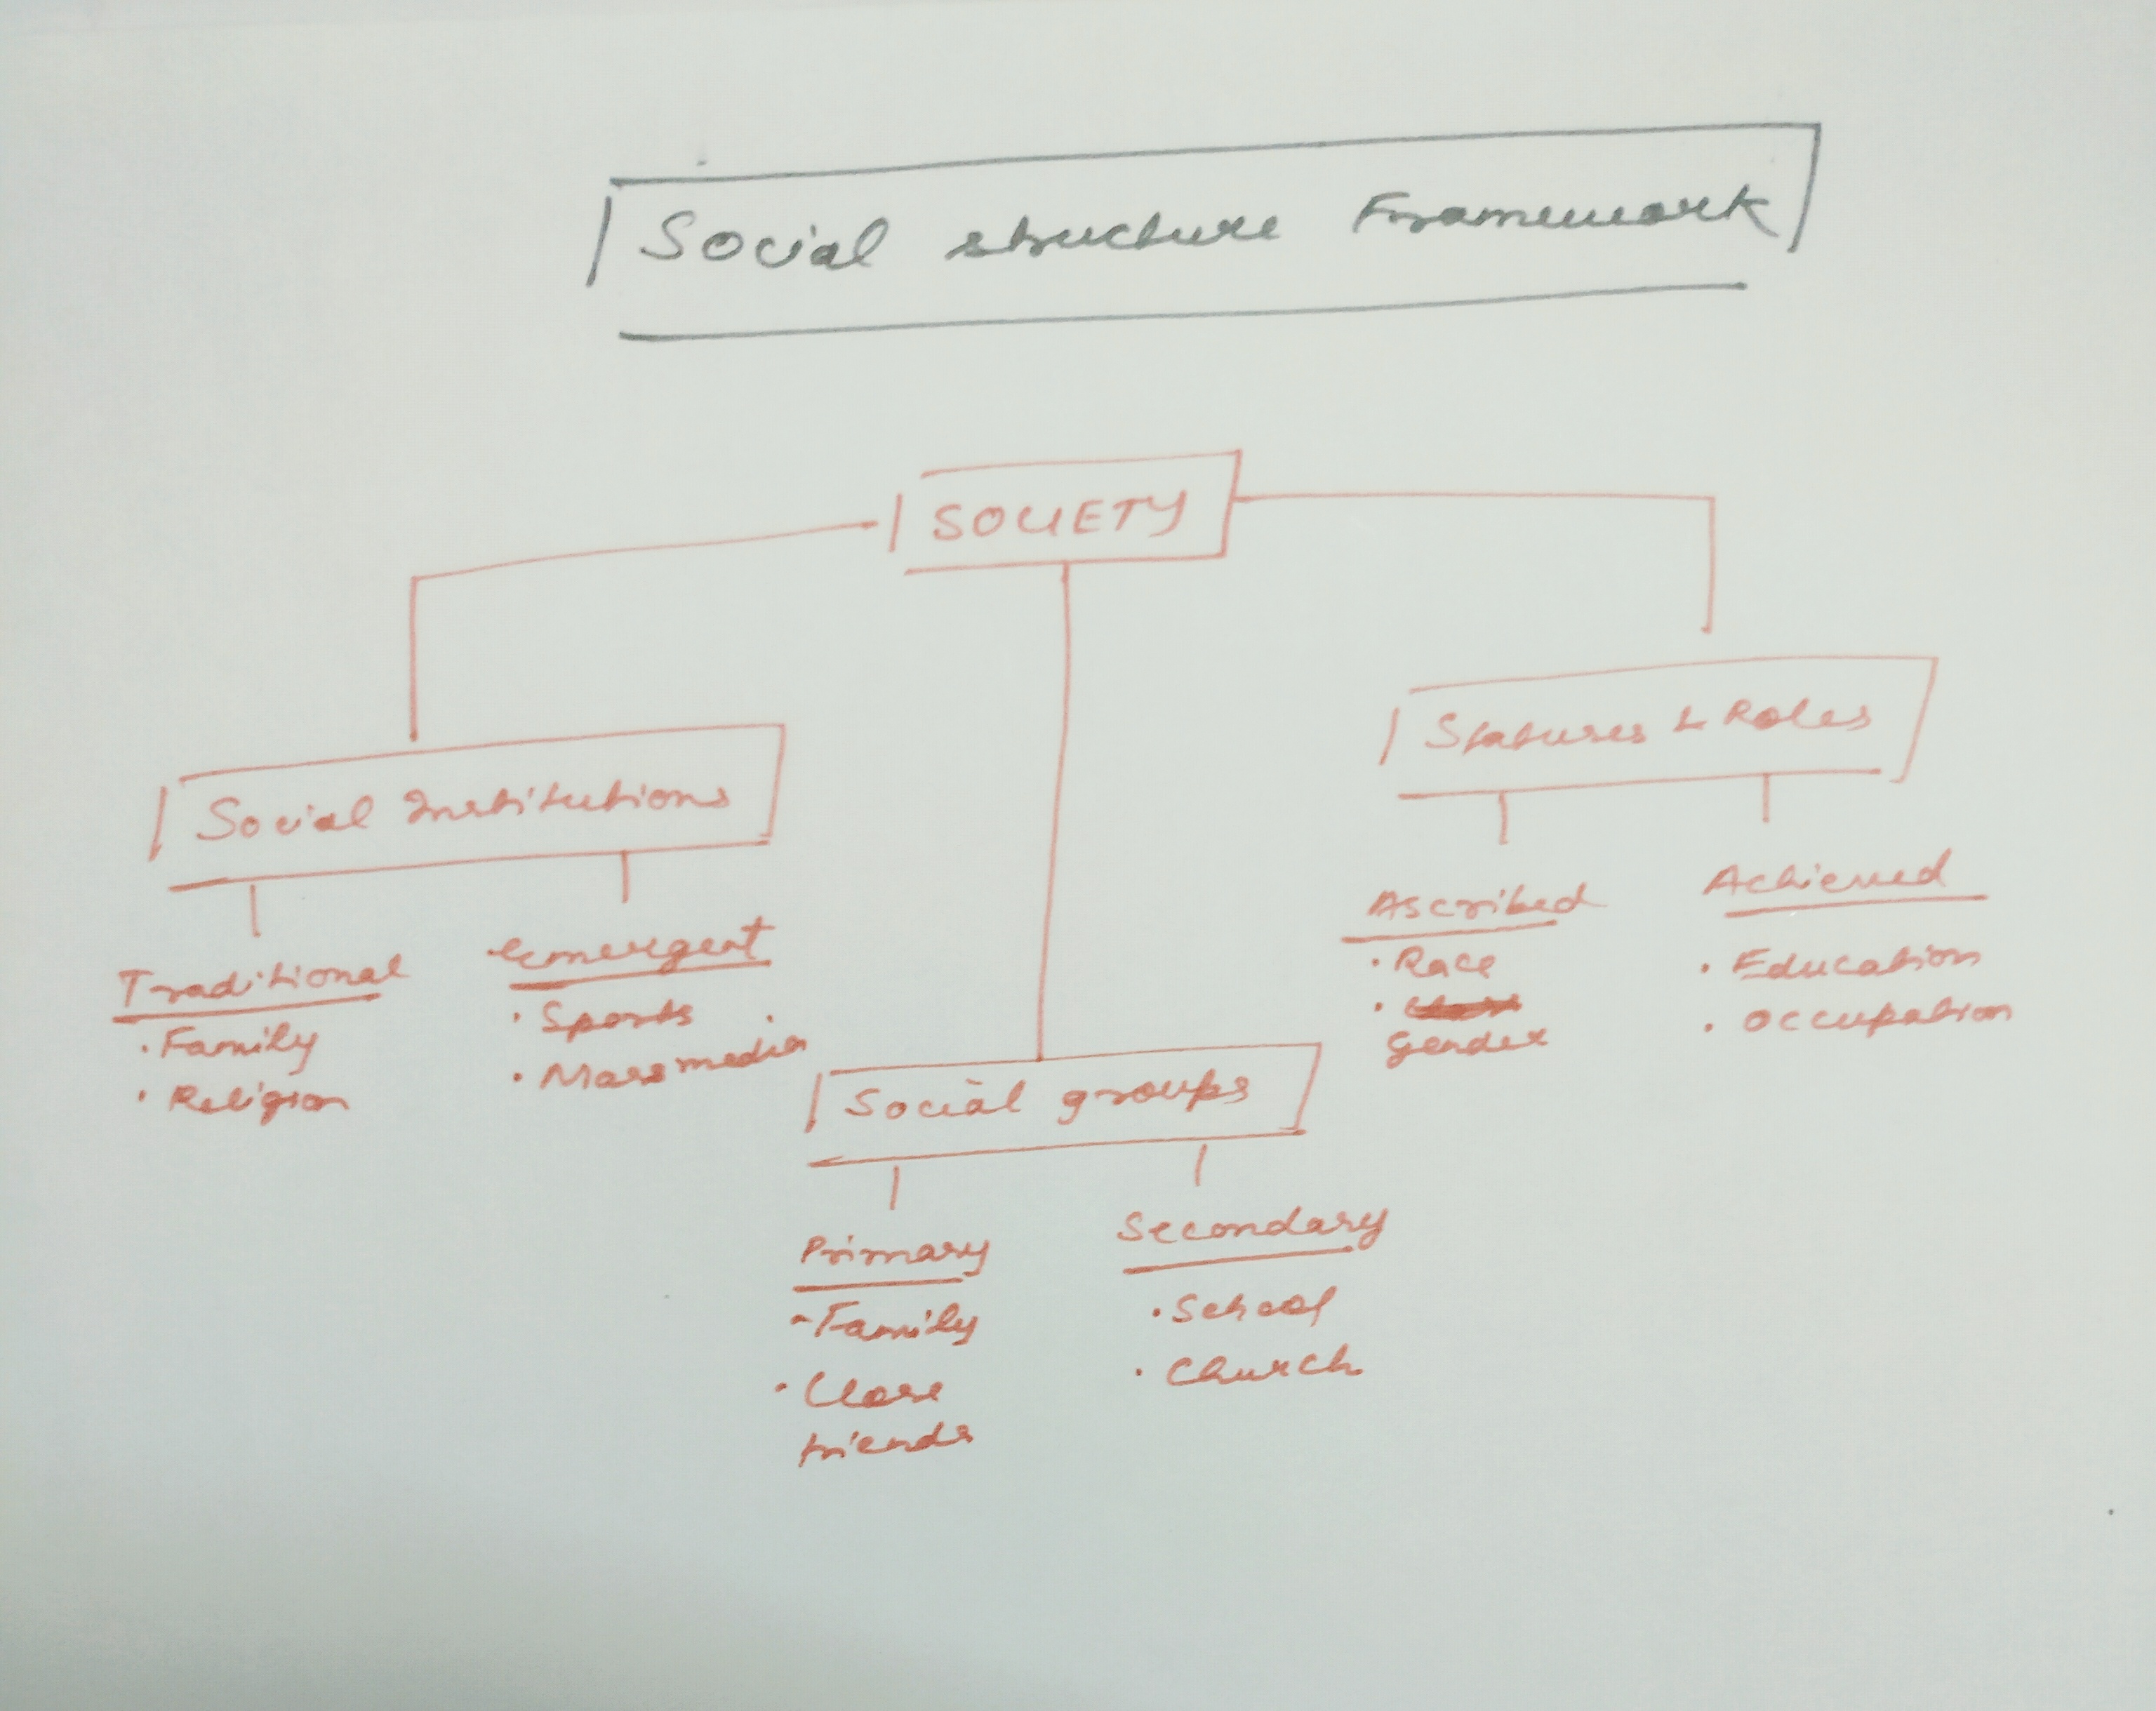 Social structure Framework
SOCIETY
Social Institutions
Traditional
• Family
• Religion
Emergent
• Sports
• Mass media
Social groups
Primary
- Family
• Close
friends
Secondary
• School
• Church
Statuses & Roles
Ascribed
• Race
•
Gender
Achieved
• Education
• Occupation